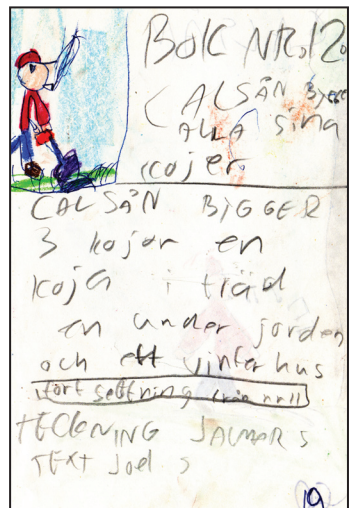 BOK NR.12.
CALSÅN BYGGER
ALLA sina
kojer
CALSÅN BYGGER
3 kojor en
koja i träd
en under jorden
och ett vinterhus
fortsettning från nr 11
TECKNING JALMAR S
TEXT Joel S
19